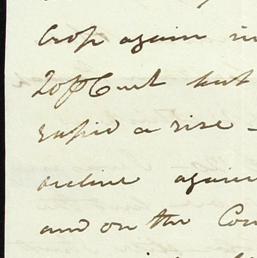 Crop again in
20 p Cent but
rapid a rise –
decline again
and on the Con